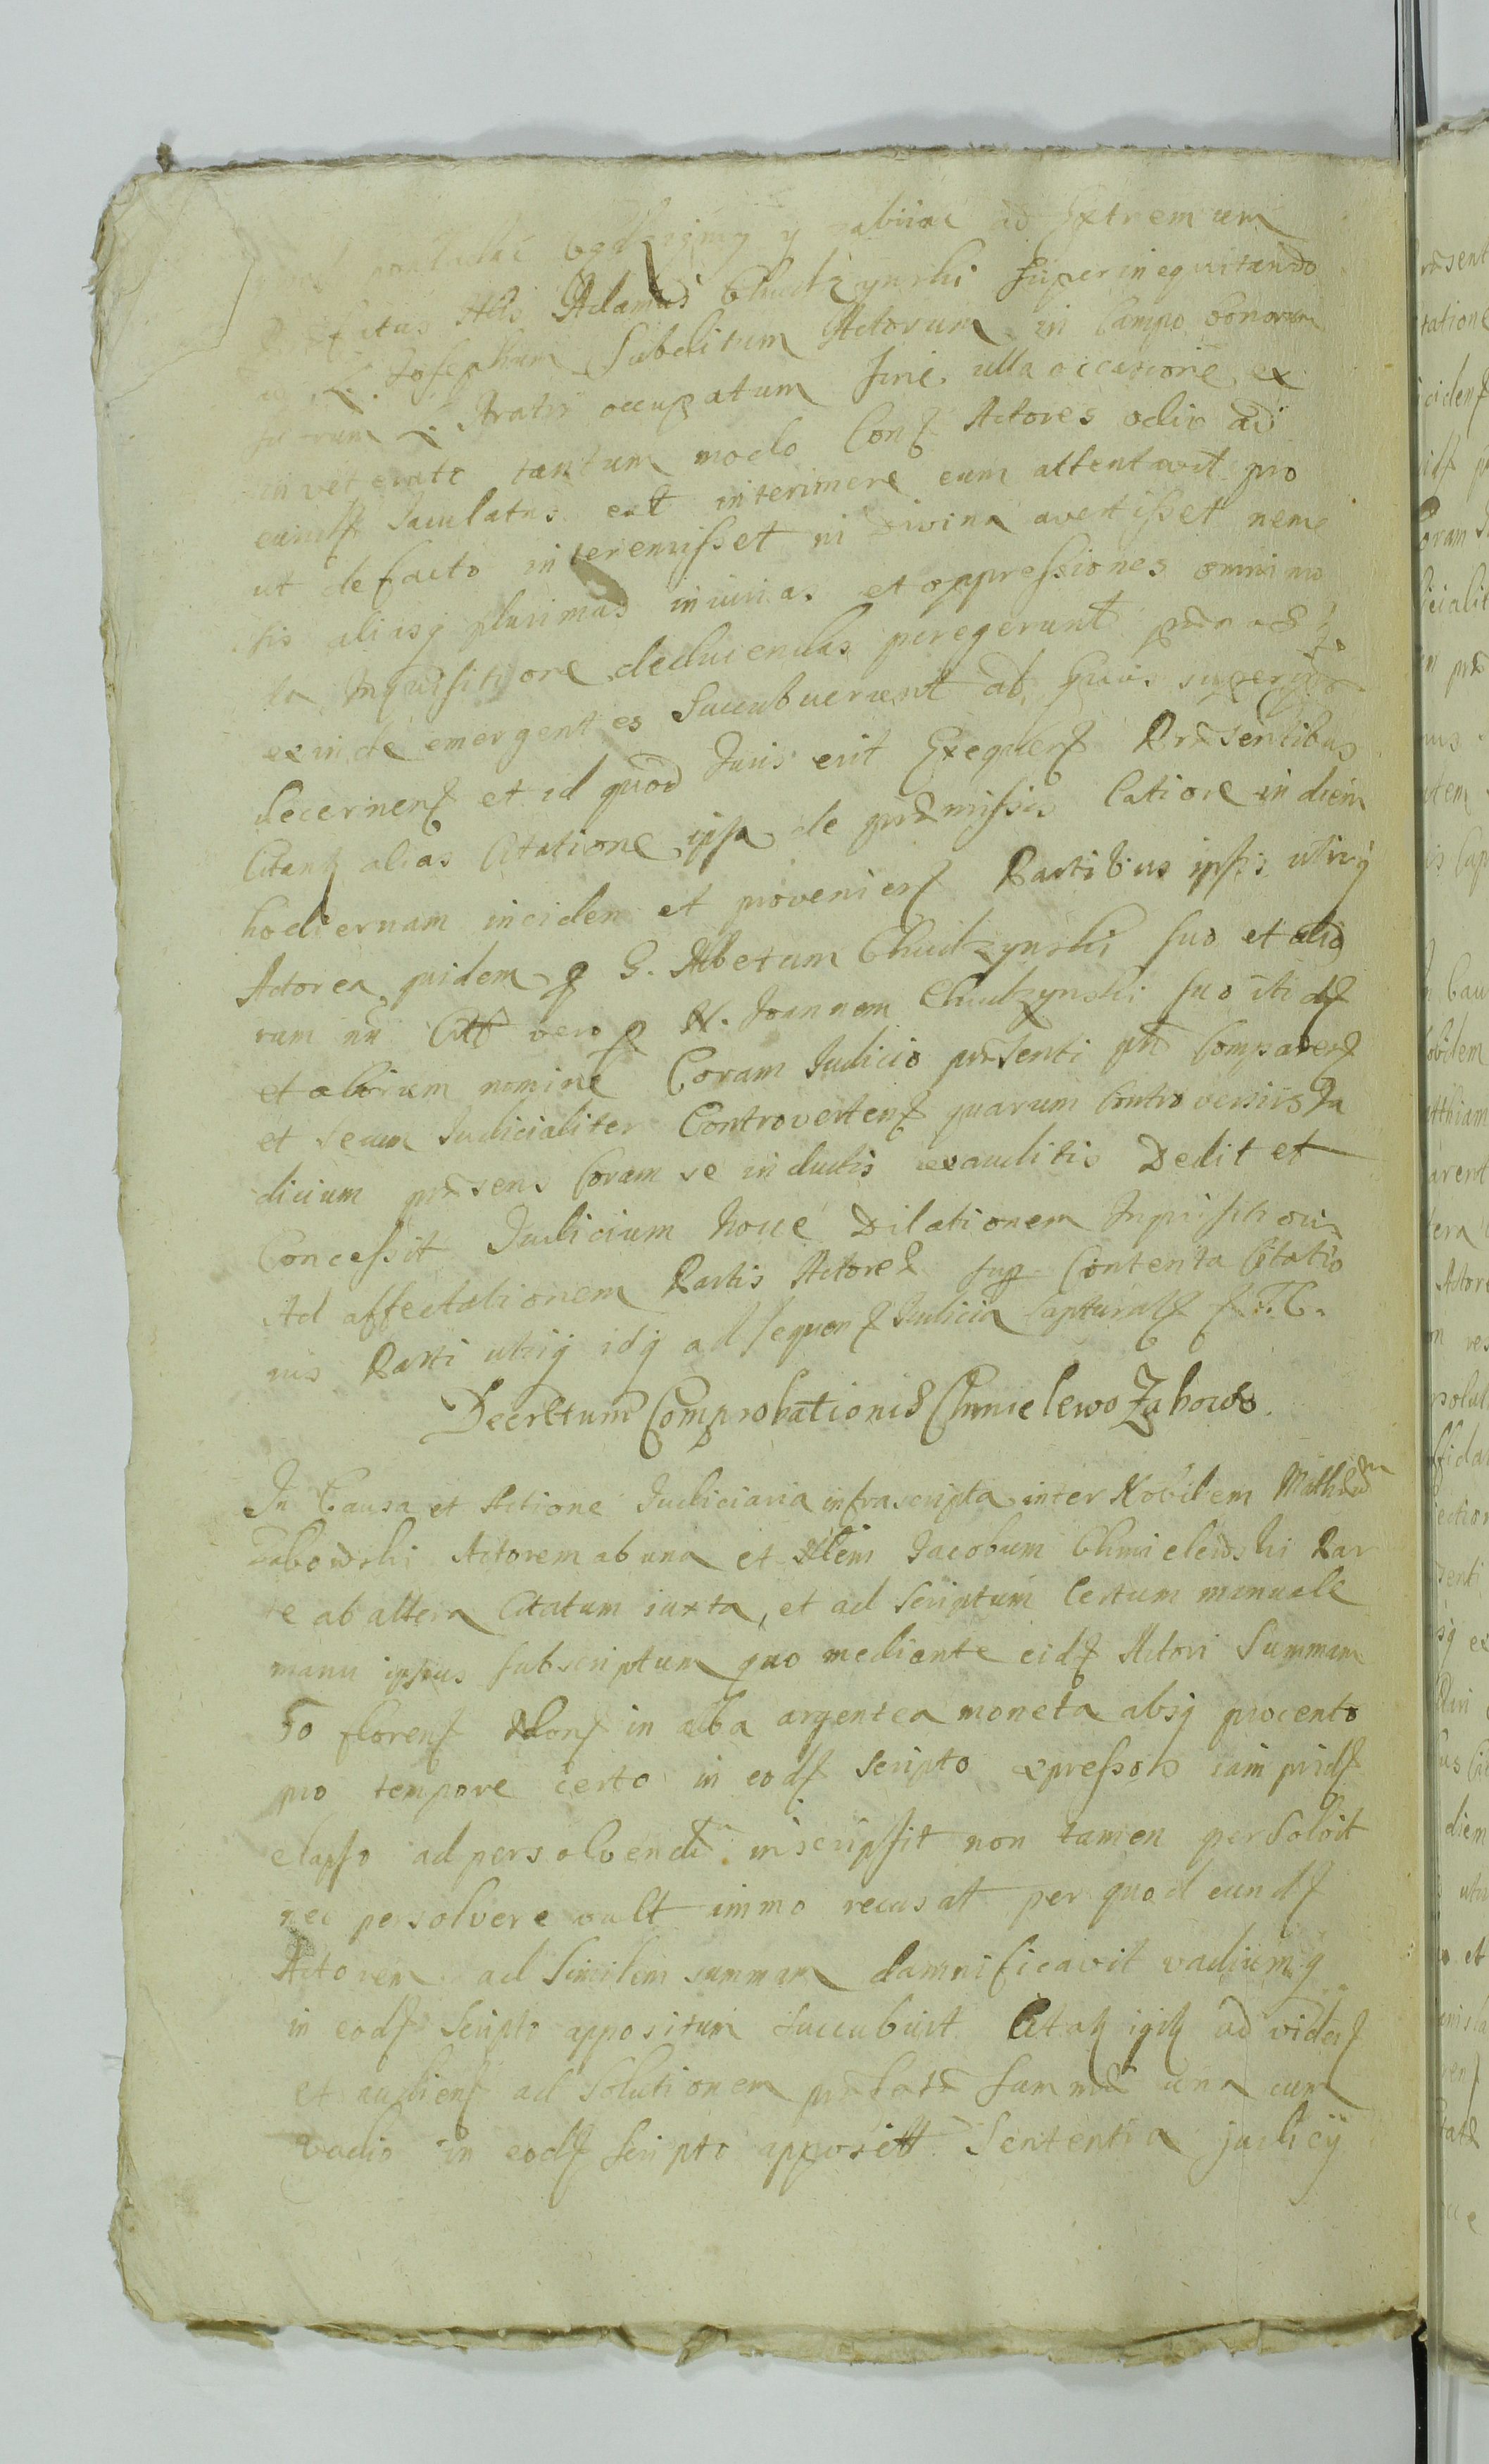 będziemy y zabiiac ad Extremum
citus Adamus Chudzynski superinequitando
Josephum Subditum Actorum in Campo bonorum
suorum & Pratis occupatum sine ulla occasione ex
inveterato tantum modo Cons Actores odio ad
eundf Jaculatus est interimere eum attentavit pro
ut de facto interemisset ni Divina avertisset neme
sis aliasq plurimas iniurias et oppressiones omnimo
da Inquisitione deducendas peregerunt pænas q
exinde emergentes Succubuerunt ad quas superinde
decernenf et id quod Juris erit Exequenf Præsentibus
Citanf alias Citatione ipsa de præmissis latiore in diem
hodiernam inciden et provenienf Partibus ipsis utrisq
Actorea quidem p G. Albertum Chudzynski suo et alio
rum nn Citt vero p N. Joannem Chudzynski suo itidf
et aliorum nomine Coram Judicio præsenti ptt Comparenf
et secum Judicialiter Controvertenf quarum Controversiis Ju
dicium præsens Coram se inductis exauditis Dedit et
Concessit Judicium hocce Dilationem Inquisitionis
Ad affectationem Partis Actoreæ sup Contenta Citatio
nis Parti utriq idq ad sequenf Judicia Capturalf f. T. C.
Decretum Comprobationis Chmielewo Zabowo.
In Causa et Actione Judiciaria infrascripta inter Nobilem Mathæum
Zabowski Actorem ab una et Nlem Jacobum Chmielewski Par
te ab altera Citatum iuxta, et ad Scriptum Certum manuale
manu ipsius subscriptum quo mediante eidf Actori Summam
50 florenf Polonf in alba argentea moneta absq procento
pro tempore certo in eodf Scripto expresso iam pridf
elapso ad persolvend inscripsit non tamen persolvit
nec persolvere vult immo recusat per quod eundf
Actorem ad Similem summam damnificavit vadiumq
in eodf Scripto appositum succubuit Citatq igitq ad videnf
et audienf ad Solutionem præfatæ summæ una cum
vadio in eodf Scripto apposito Sententia judicij